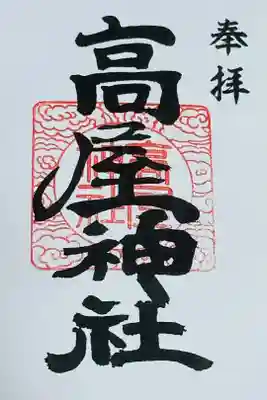 奉拝
高屋神社